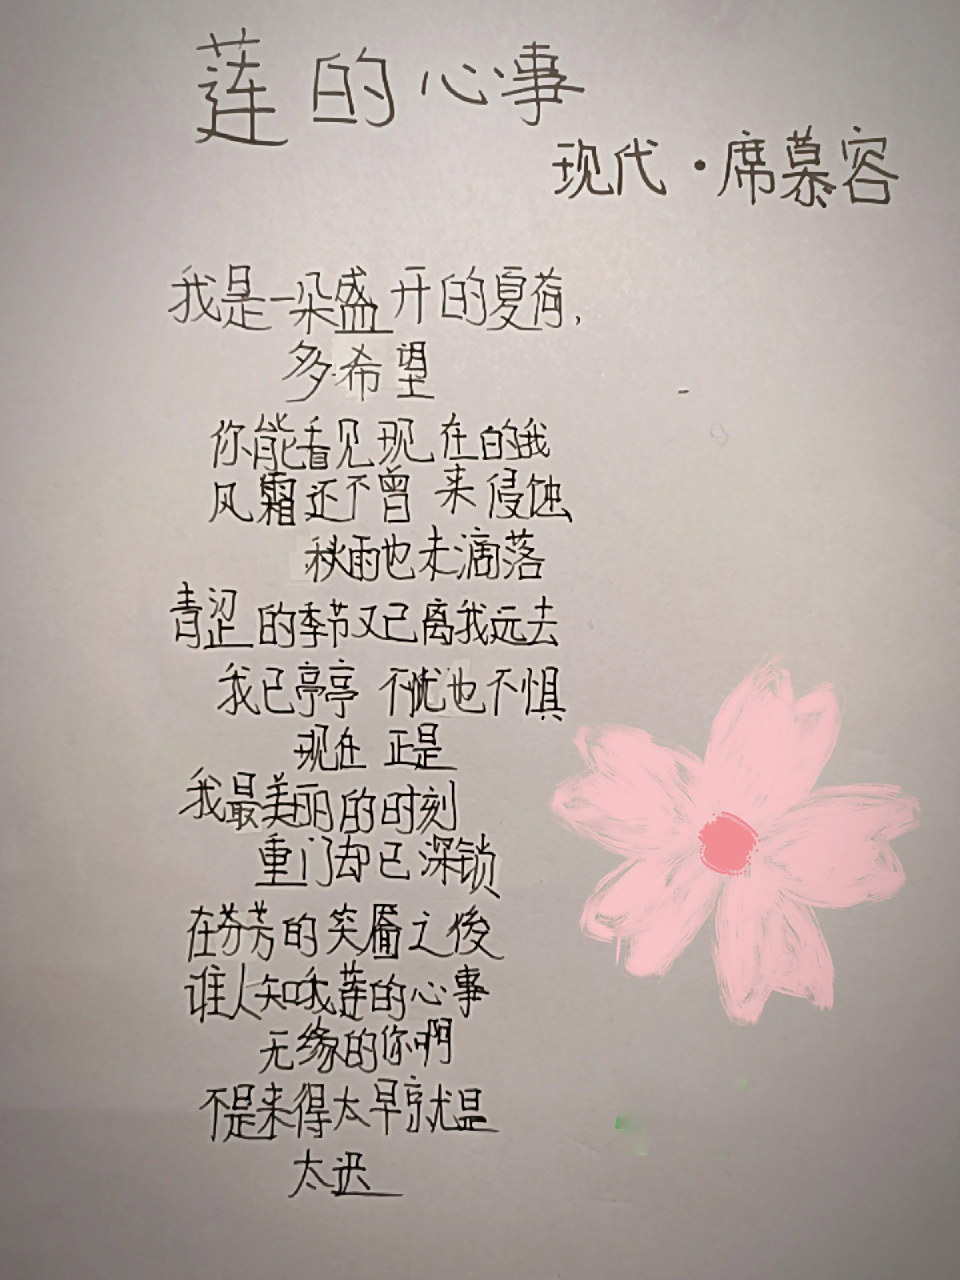 莲的心事
现代·席慕容
我是一朵盛开的夏荷,
多希望
你能看见现在的我
风霜还不曾来侵蚀
秋雨也未滴落
青涩的季节又已离我远去
我已亭亭 不忧也不惧
现在 正是
我最美丽的时刻
重门却已深锁
在芬芳的笑靥之後
谁人知我莲的心事
无缘的你啊
不是来得太早就是
太迟